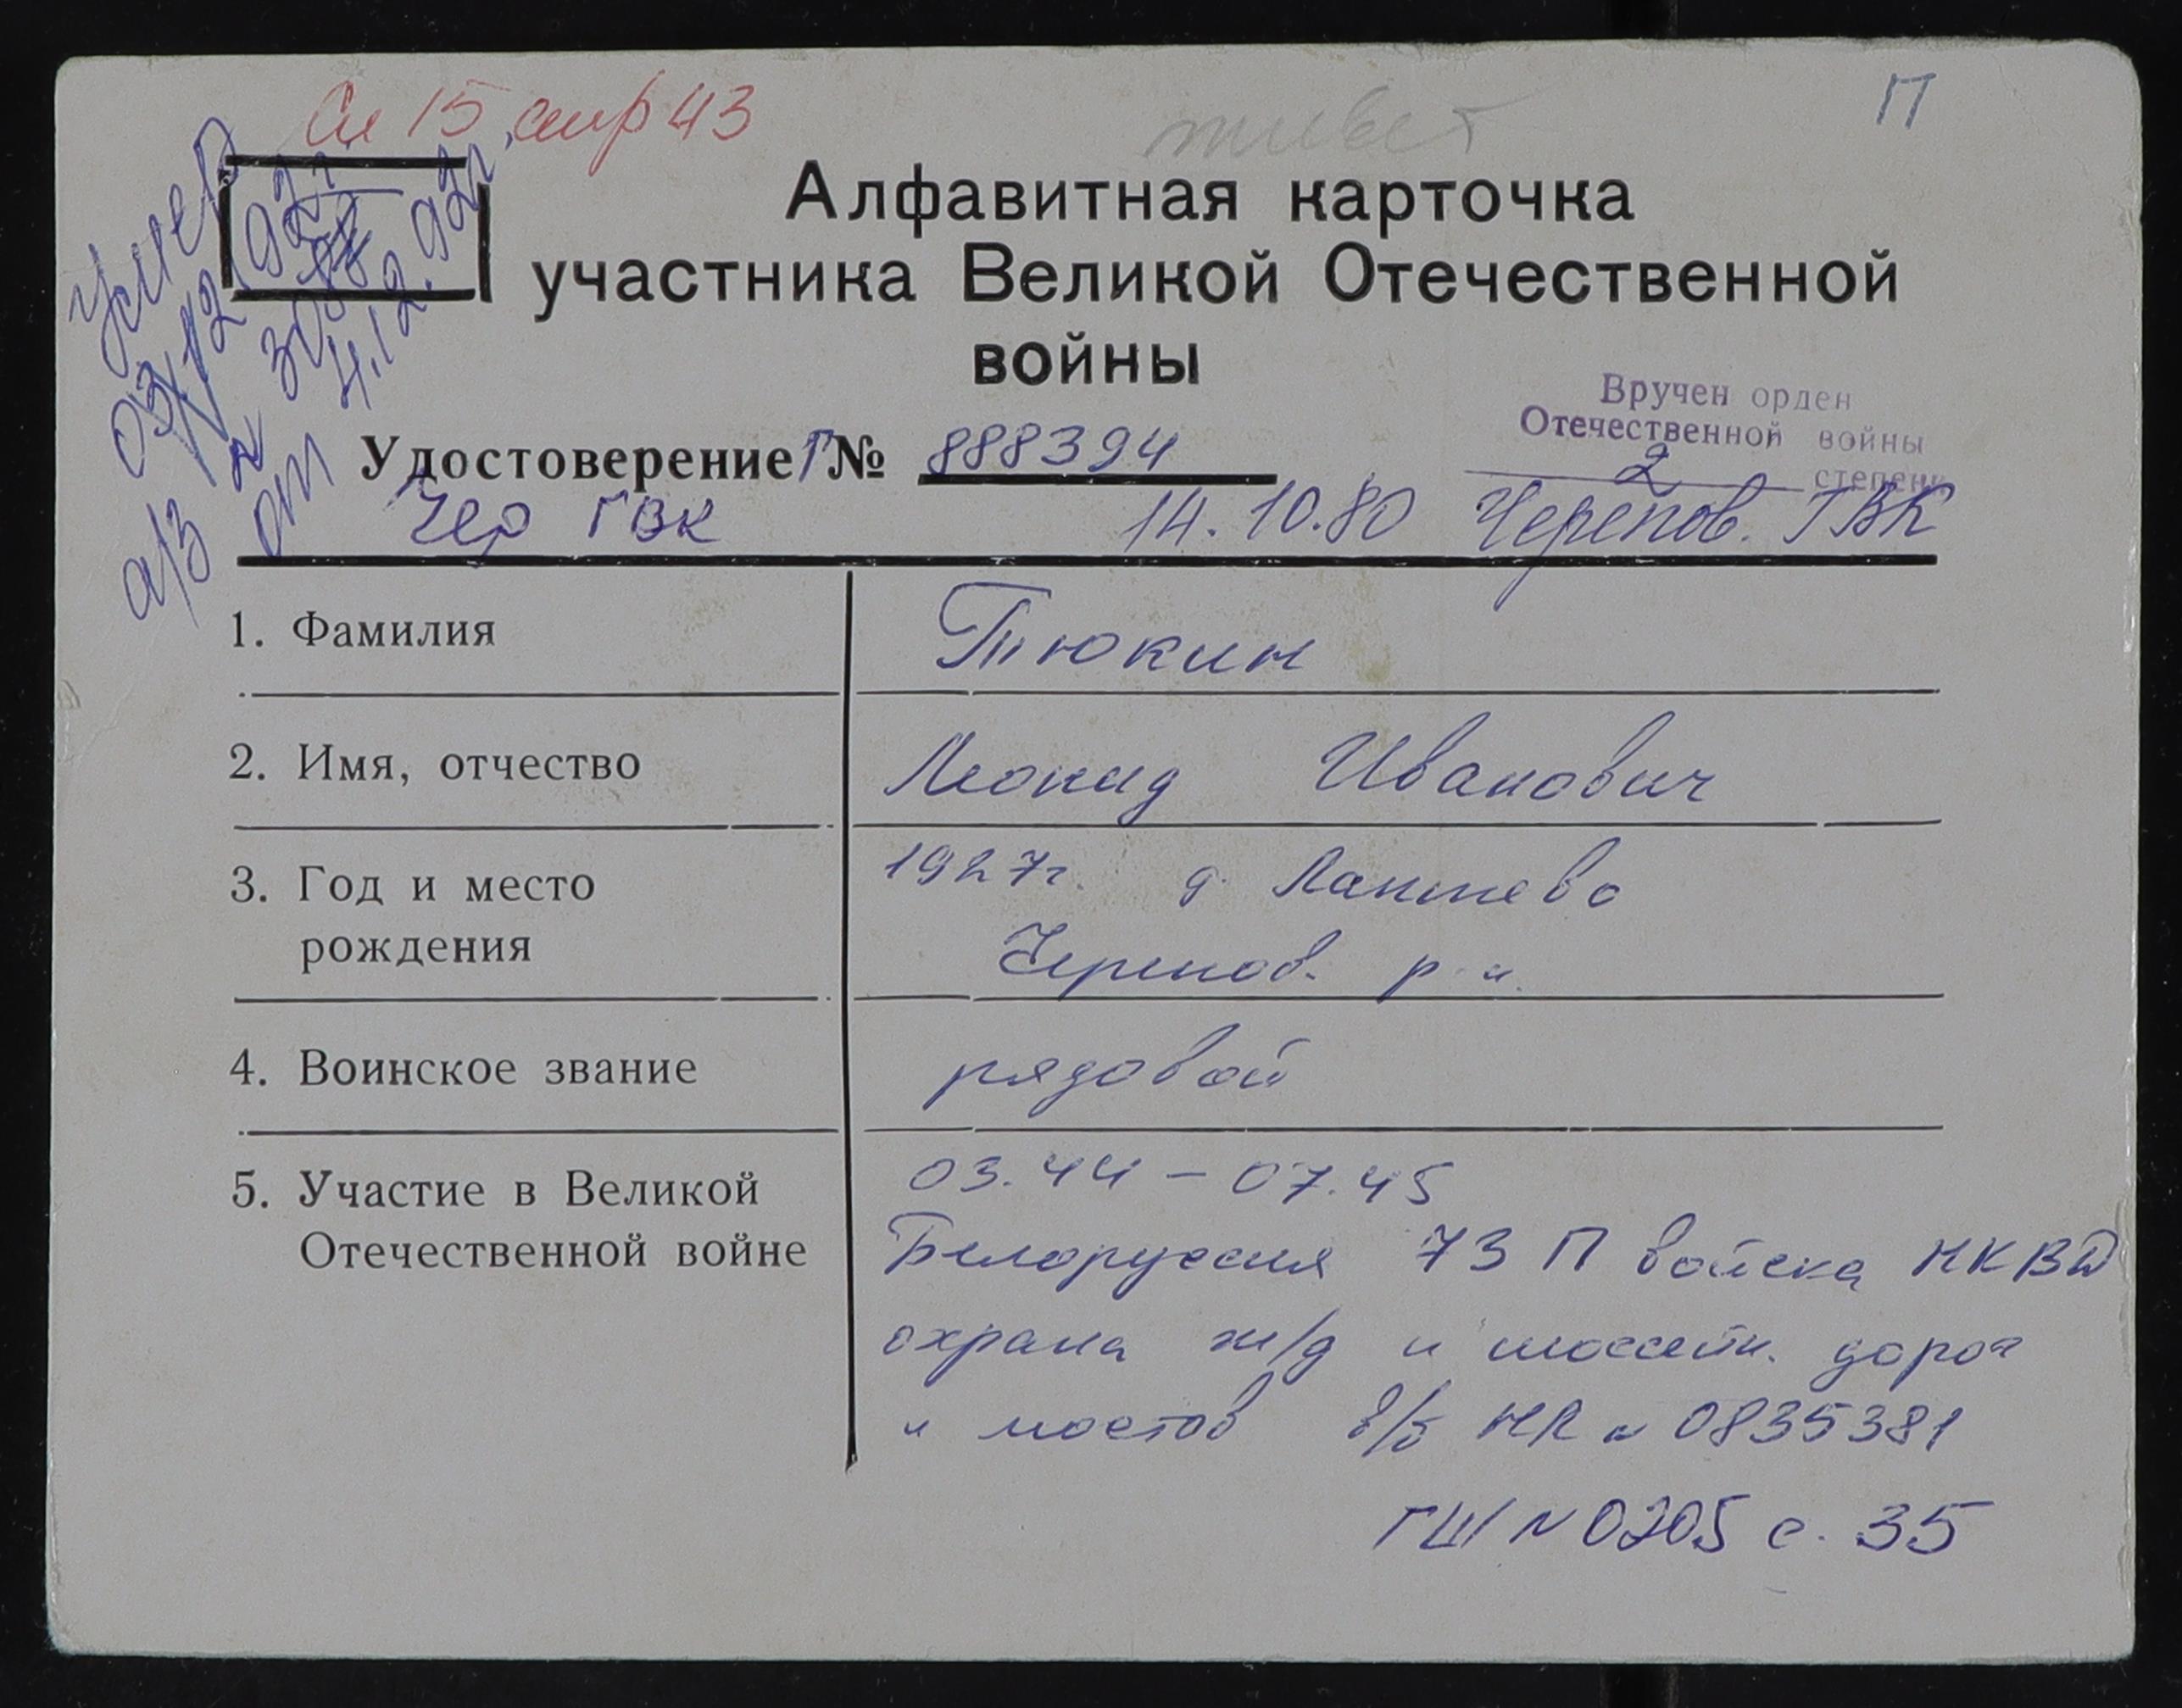 Сп 15, стр 43
живет
П
умер
03.12.92г.
а/з № 3088
от 4.12.92г
Алфавитная карточка
участника Великой Отечественной
войны
Вручен орден
Отечественной войны
2 степени
Удостоверение Г № 888394
Чер ГВК 14.10.80 Черепов. ГВК
1. Фамилия Тюкин
2. Имя, отчество Леонид Иванович
3. Год и место 1927г. д. Лаптево
рождения Черепов. р-н.
4. Воинское звание рядовой
5. Участие в Великой 03.44 – 07.45
Отечественной войне Белоруссия 73 П войска НКВД
охрана ж/д и шоссейн. дорог
и мостов в/б НЯ № 0835381
ГШ № 0205 с. 35